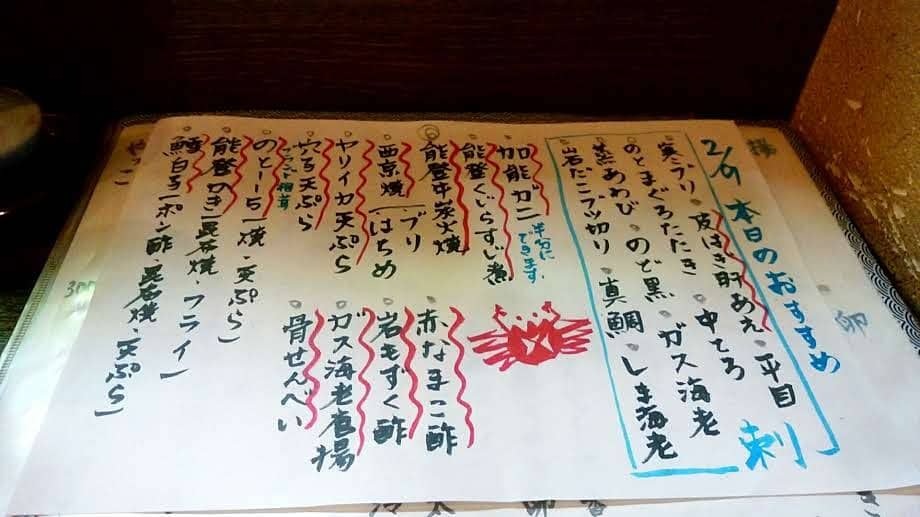 2/9 本日のおすすめ
刺
寒ブリ・皮はぎ肝あえ・平目
のとまぐろたたき・中とろ
蒸あわび・のど黒・ガス海老
岩だこブツ切り・真鯛・しま海老
加能ガニ 半分にできます
能登くじらすじ煮
能登牛炭火焼
西京焼 ブリ はちめ
ヤリイカ天ぷら
穴子天ぷら
のとー(焼・天ぷら)
能登カキ(昆布焼・フライ)
鱈白子(ポン酢・昆布焼・天ぷら)
赤なまこ酢
岩もずく酢
ガス海老唐揚
骨せんべい
やっこ
300
卵